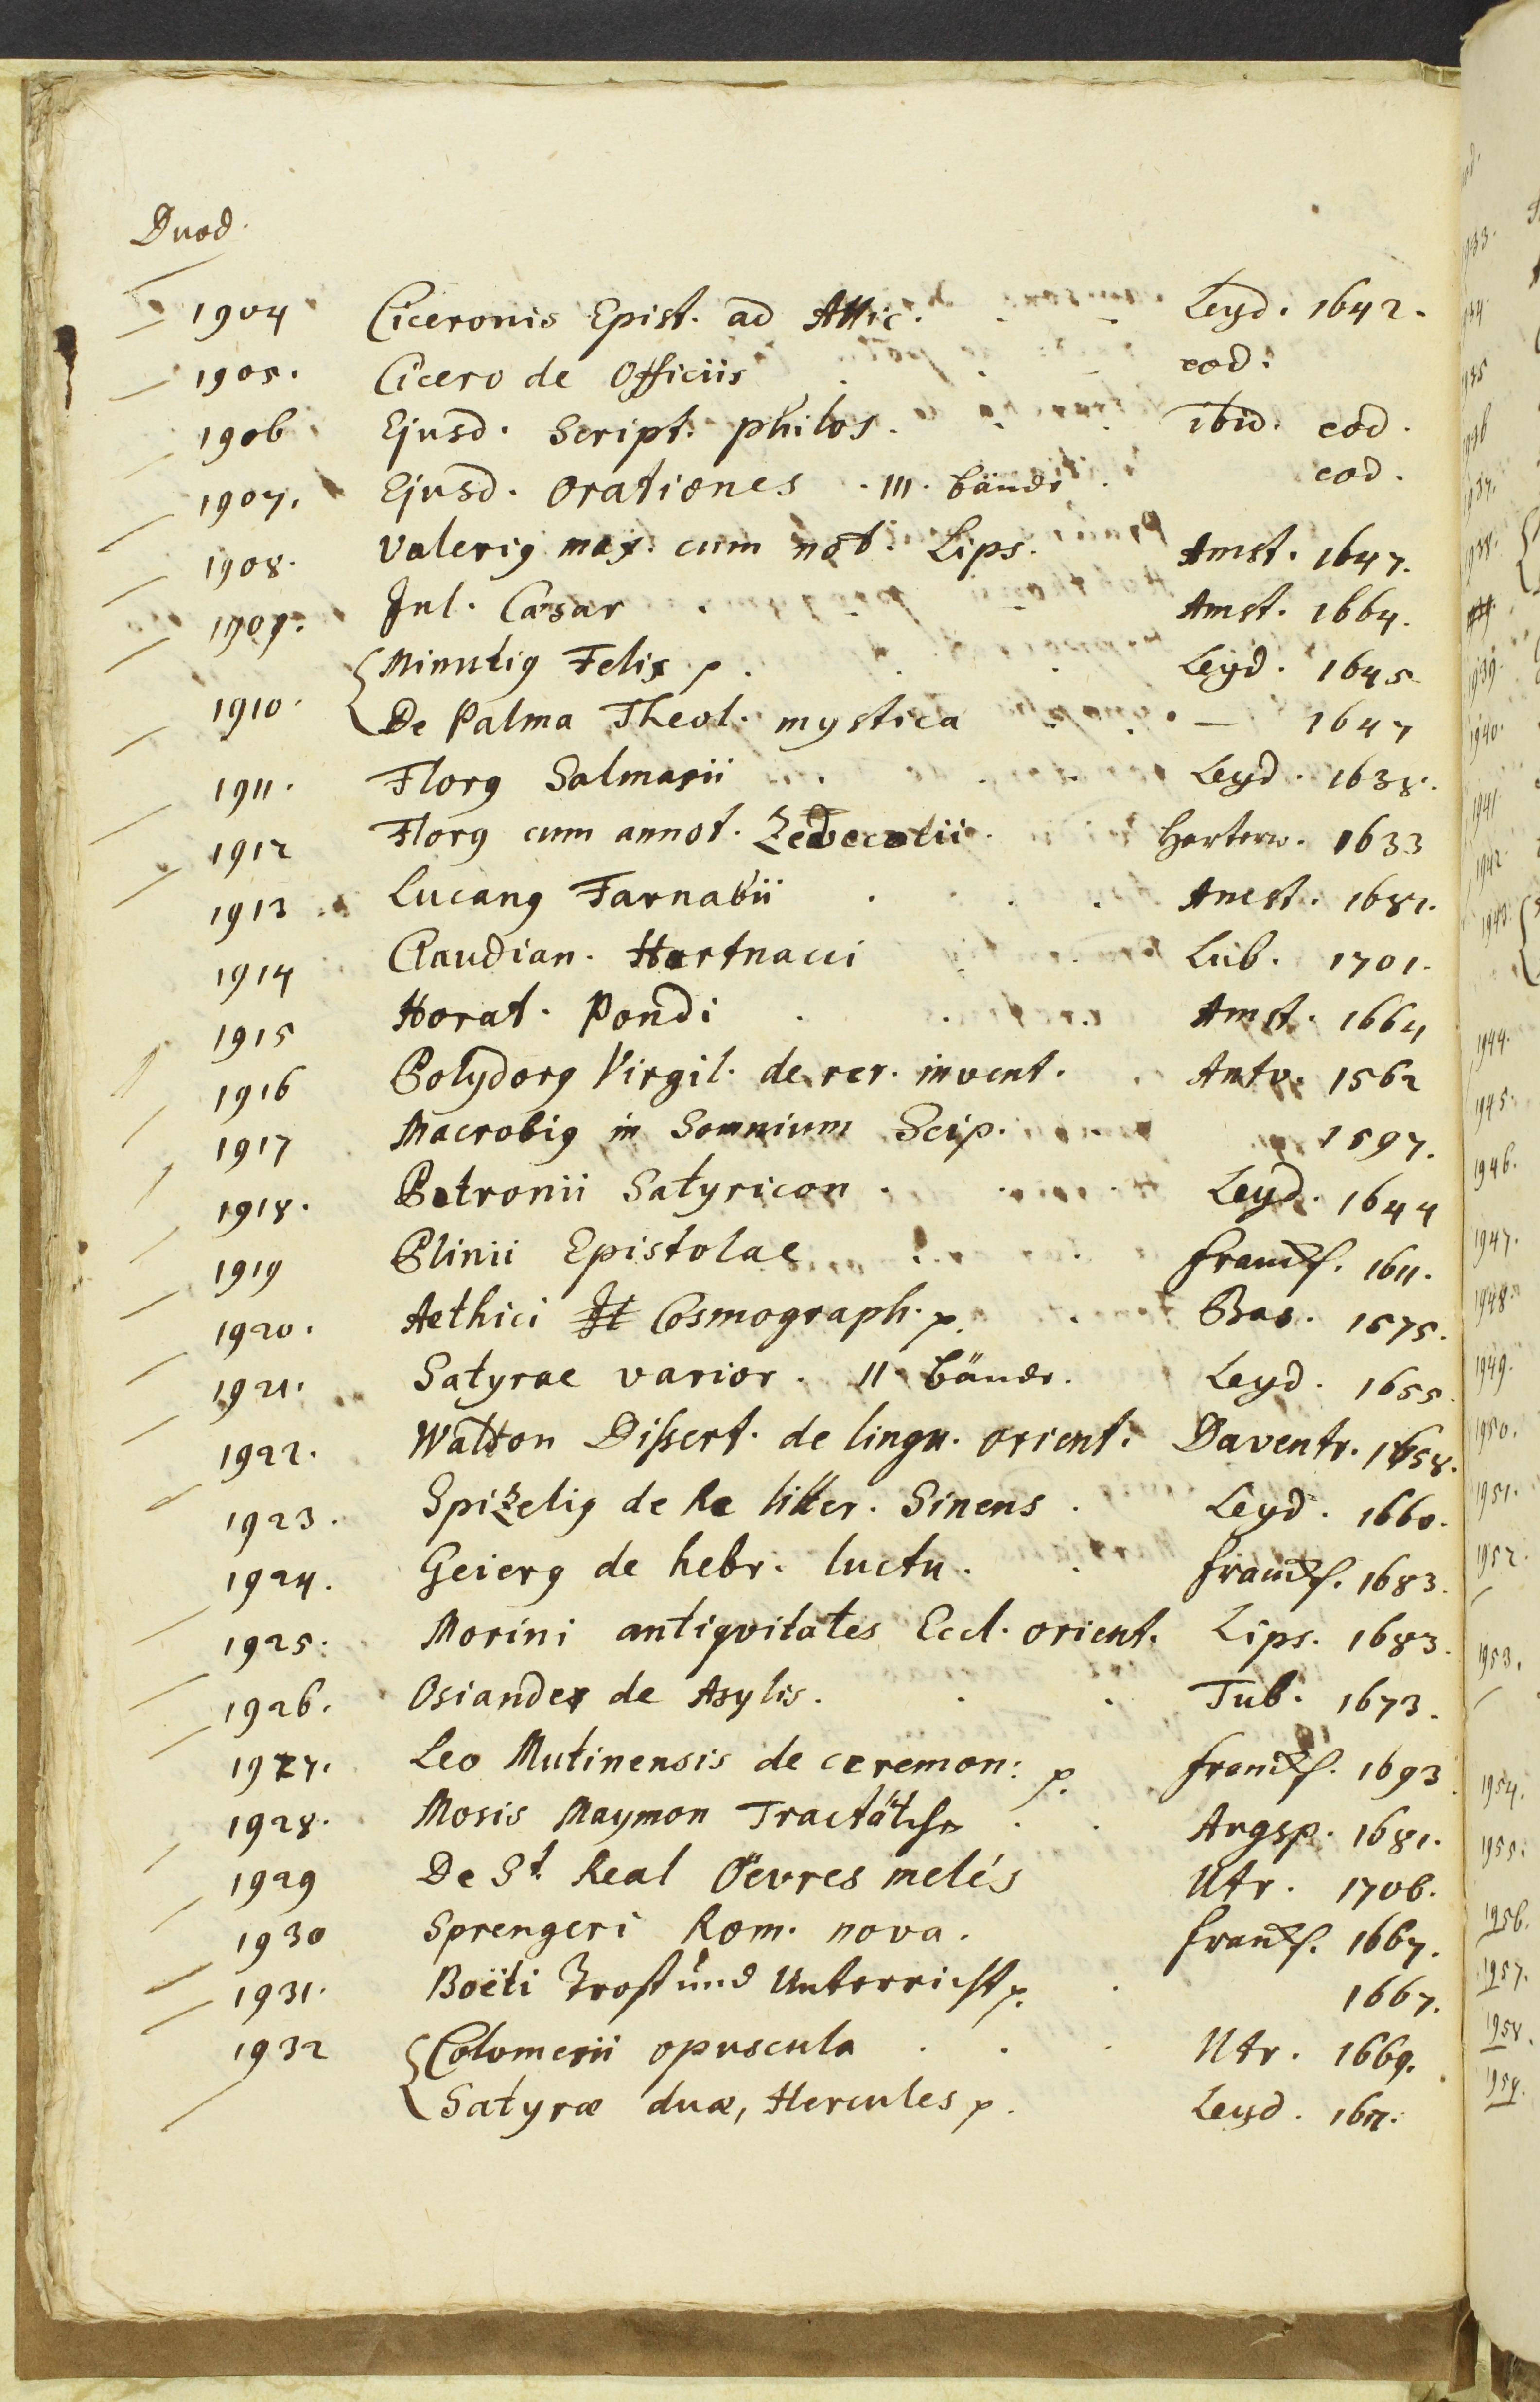 Duod.
1904 Ciceronis Epist. ad Attic. Leyd. 1642.
1905. Cicero de Officiis eod.
1906 Ejusd. Script. philos. ibid. eod.
1907. Ejusd. Orationes . III. bände eod.
1908. Valerig max. cum not. Lips. Amst. 1647.
1909. Jul. Cæsar Amst. 1664.
1910. Minutig Felix p. Leyd. 1645
De Palma Theol. mystica — 1647
1911. Florg Salmasii Leyd. 1638.
1912 Florg cum annot. 1633
1913 Lucang Farnabii Amst. 1681.
1914 Claudian. Hartnacci Lub. 1701.
1915 Horat. Pondi Amst. 1664
1916 Polydorg Virgil. de rer. invent. Antv. 1562
1917 Macrobig in Somnium Scip. 1597.
1918. Petronii Satyricon Leyd. 1644
1919 Plinii Epistolae Franckf. 1611.
1920. Aethici Cosmograph. p. Bas. 1575.
1921. Satyrae varior. II bände. Leyd. 1655.
1922. Walton Dissert. de lingu. orient. Daventr. 1658.
1923. Spizelig de Re litter. Sinens Leyd. 1660.
1924. Geierg de hebr. luctu. Franckf. 1683.
1925. Morini antiqvitates Eccl. orient. Lips. 1683.
1926. Osiander de Asylis. Tub. 1673.
1927. Leo Mutinensis de ceremon: p. Franckf. 1693
1928. Mosis Maymon Tractätchn Augsp. 1681.
1929 De St. Real Öevres melés Utr. 1706.
1930 Sprengeri Rom. nova. Franckf. 1667.
1931. Boëti Trost und Unterricht p. 1667.
1932 Colomesii opuscula Utr. 1669.
Satyræ duæ, Hercules p. Leyd. 1617.